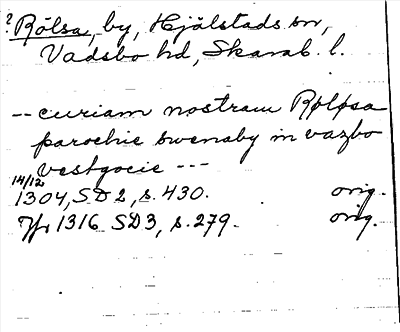 ? Rölsa, by, Hjälstads sn,
Vadsbo hd, Skarab. l.
-- curiam nostram Røløsa
parochie swenaby in vazbo
vestgocie ---
14/12
1304, SD 2, s. 430. orig.
Jfr 1316 SD3, s. 279. orig.